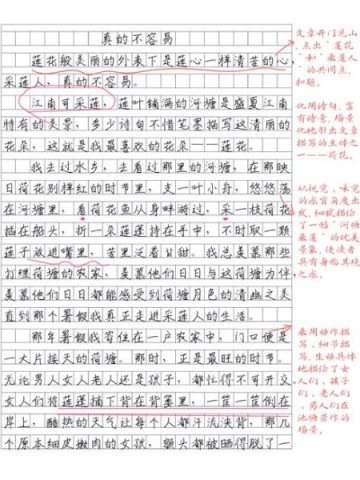 真的不容易
莲花般美丽的外表下是莲心一样清苦的心，
采莲人，真的不容易。
江南可采莲，莲叶铺满的河塘是盛夏江南
特有的美景，多少诗句不惜笔墨描写这清丽的
花朵，这就是我最喜欢的花朵——莲花。
我去过水乡，去看过那里的河塘，在那映
日荷花别样红的时节里，支一叶小舟，悠悠荡
在河塘里，看荷花鱼从身畔游过，采一枝荷花
插在船头，折一朵莲蓬持在手中，不时取一颗
莲子放进嘴里，苦里泛着甘甜。我总羡慕那些
打理荷塘的农家，羡慕他们日日与这荷塘为伴
羡慕他们日日都能感受到荷塘月色的清幽之美
直到那个暑假我真正走进采莲人的生活。
那年暑假我寄住在一户农家中，门口便是
一大片接天的荷塘。那时，正是最旺的时节。
无论男人女人老人还是孩子，都忙得不可开交
女人们将莲蓬摘下背在背篓里，一筐一筐倒在
岸上，酷热的天气让每个人都汗流浃背，那几
个原本细皮嫩肉的女孩，额头都被晒得脱了一
文章开门见山
，点出“莲花
”和“采莲人
”的共同点，
扣题。
化用诗句，富
有诗意，场景
化地引出文章
描写的主体之
一——荷花。
从视觉，味觉
的感官角度出
发，细腻描绘
了一幅“河塘
采莲”的优美
景象，使读者
具有身临其境
之感。
采用动作描
写、细节描
写，生动具体
地描绘了女
人们、孩子
们，老人们
、男人们在
池塘劳作的
场景。